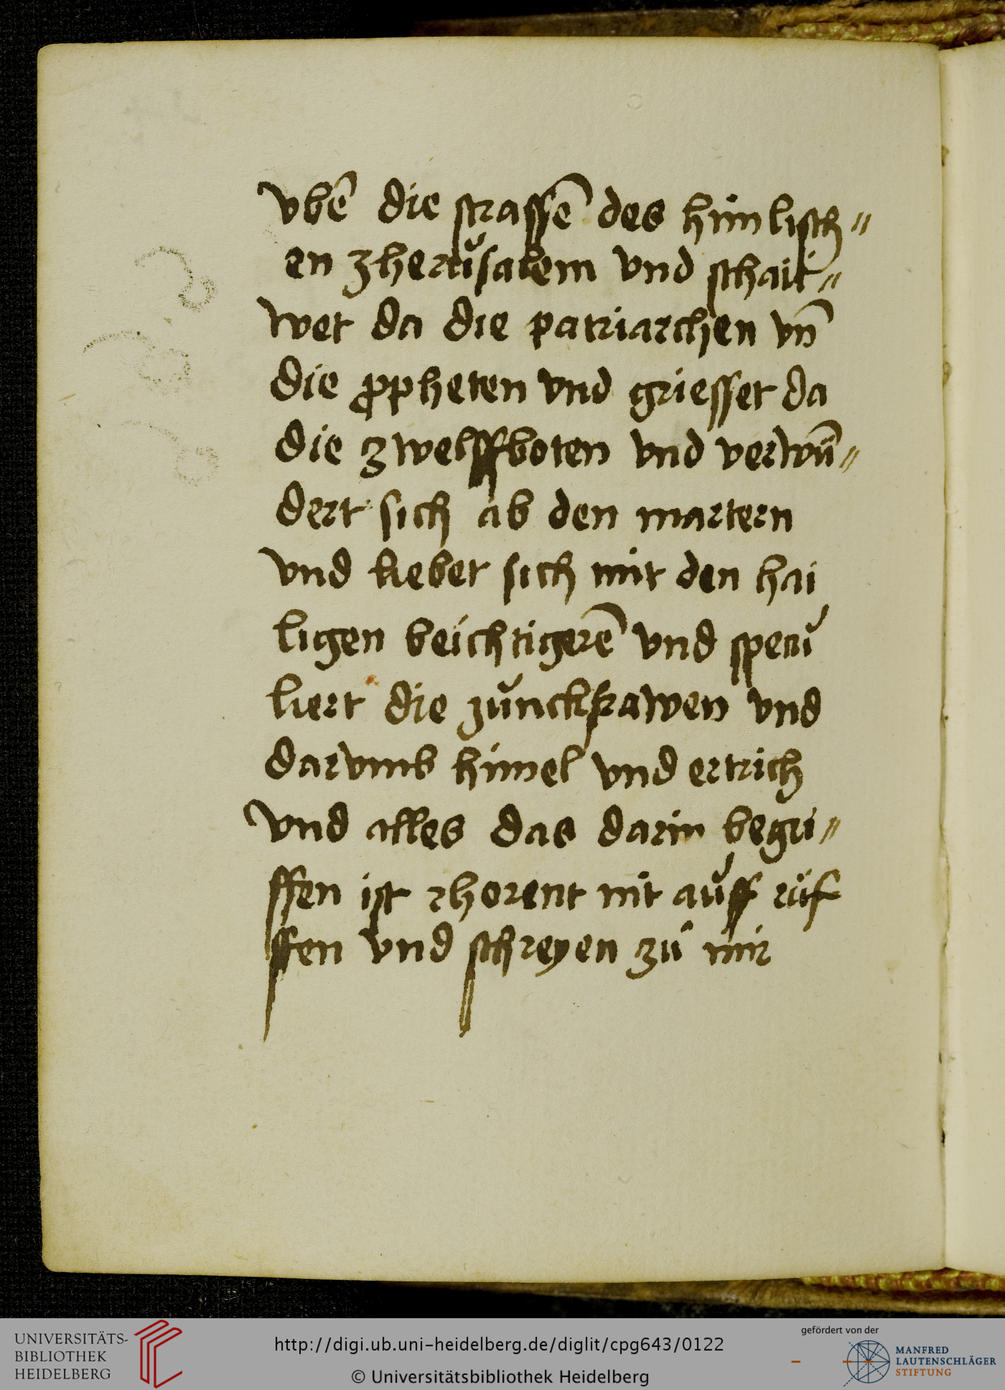 vbē die strassē des himlisch〃
en Jherusalem vnd schau〃
wet da die patriarchen vn̄
die ꝓpheten vnd griesset da
die zwelffboten vnd verwū〃
dert sich ab den martern
vnd liebet sich mit den hai
ligen beichtigerē vnd specu
liert die junckfrawen vnd
darvmb himel vnd ertrich
vnd alles das darin begri〃
ffen ist rhorent nit auff rüf
ffen vnd schreyen zů mir
UNIVERSITÄTS-
BIBLIOTHEK
HEIDELBERG
http://digi.ub.uni-heidelberg.de/diglit/cpg643/0122
© Universitätsbibliothek Heidelberg
gefördert von der
MANFRED
LAUTENSCHLÄGER
STIFTUNG